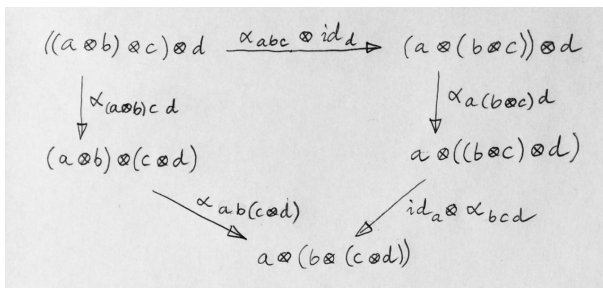 ((a ⊗ b) ⊗ c) ⊗ d α_{abc} ⊗ id_d (a ⊗ (b ⊗ c)) ⊗ d
α_{(a⊗b)cd} α_{a(b⊗c)d}
(a ⊗ b) ⊗ (c ⊗ d) a ⊗ ((b ⊗ c) ⊗ d)
α_{ab(c⊗d)} id_a ⊗ α_{bcd}
a ⊗ (b ⊗ (c ⊗ d))